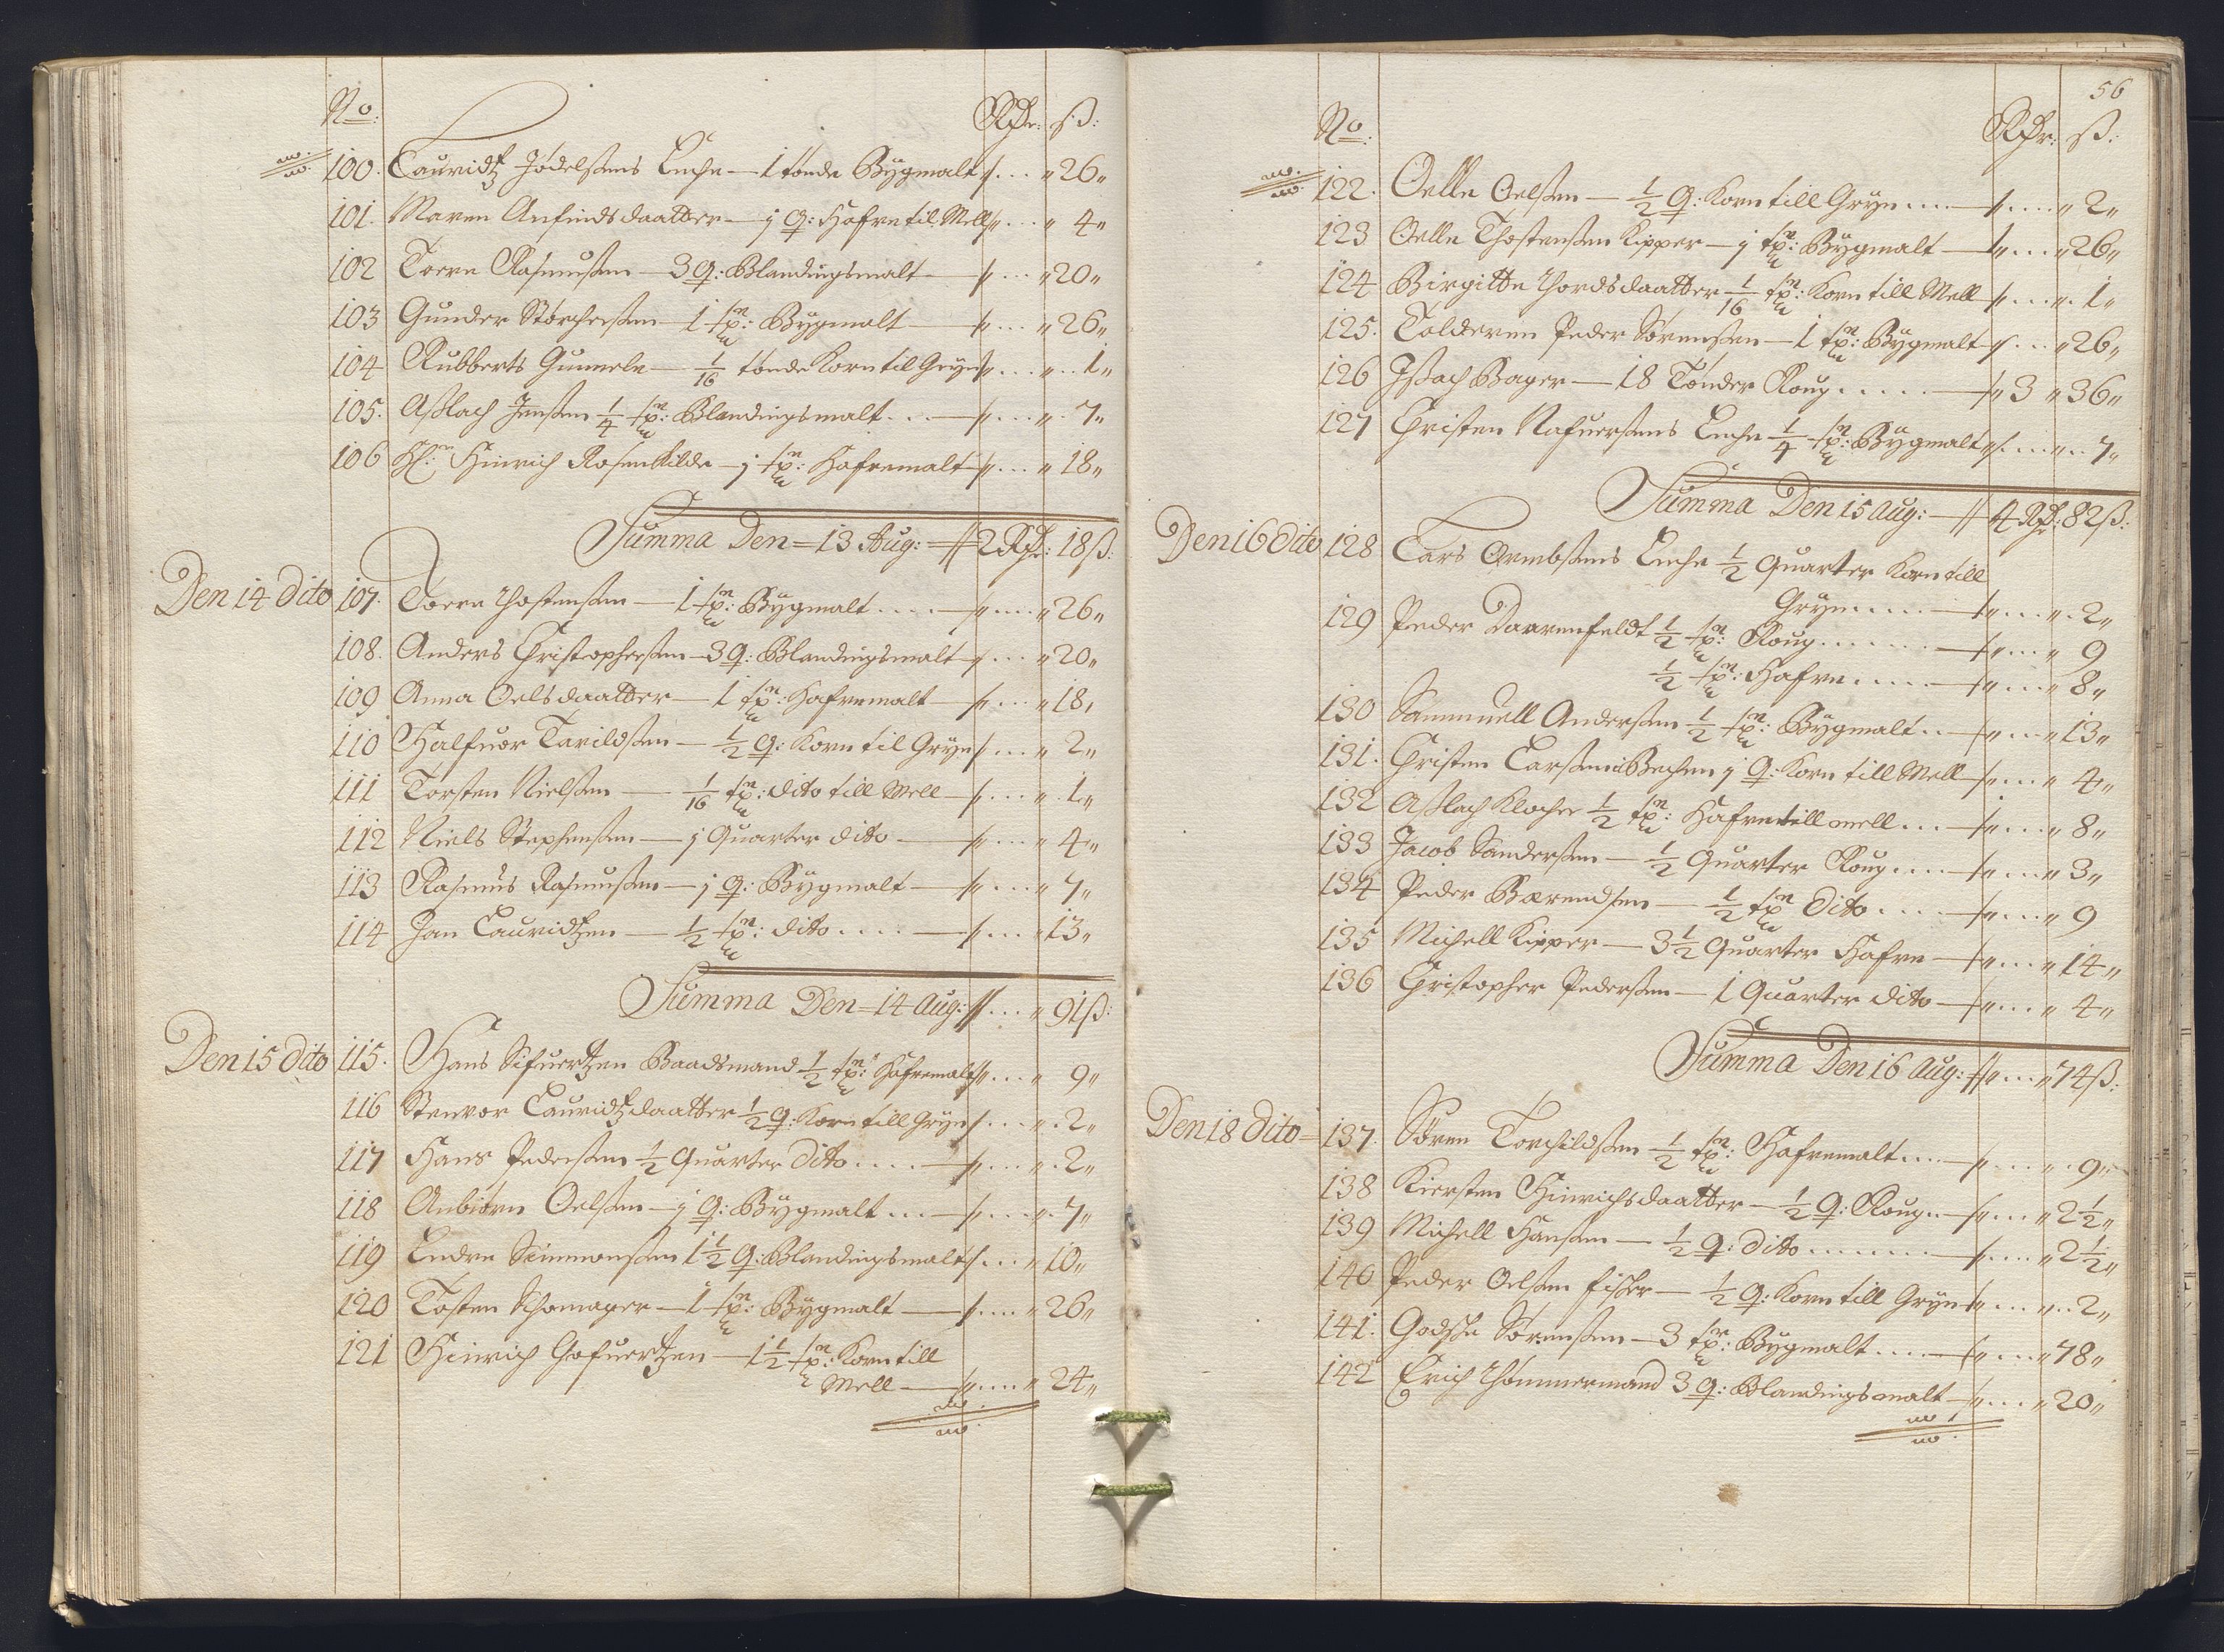 No: Rdr: ß:
100. Lauridtz Jødelsens Enche — 1 tønde Bygmalt „ 26„
101. Maren Anfindsdaatter — j Q: Hafre til Mell „ 4„
102 Toere Rasmussen — 3 Q: Blandingsmalt — „ 20„
103 Gunder Størchersen — 1 tp: Bygmalt — „ 26„
104 Rubberts Gunnele — 1/16 tønde Korn til Gryn „ 1„
105. Asslach Jensen 1/4 tp: Blandingsmalt — „ 7„
106 Hr: Hinrich Rosenkilde — j tp: Hafremalt „ 18„
Summa Den 13 Aug: — 2 Rdr: 18 ß:
Den 14 Dito 107. Toere Thostensen — 1 tp: Bygmalt — „ 26„
108. Anders Christophersen — 3 Q: Blandingsmalt „ 20„
109 Anna Oelsdaatter — 1 tp: Hafremalt — „ 18„
110 Halfuor Tarildsen — 1/2 Q: Korn til Gryn „ 2„
111 Torsten Nielsen — 1/16 tp: dito till Mell — „ 1„
112 Niels Stephensen — j Quarter dito — „ 4„
113 Rasmus Rasmussen — j Q: Bygmalt — „ 7„
114 Jan Lauridtzen — 1/2 tp: dito — „ 13„
Summa Den 14 Aug: „ 91 ß:
Den 15 Dito 115. Hans Sifuertzen Baadsmand 1/2 tp: Hafremalt „ 9„
116 Stenvor Lauridtzdaatter 1/2 Q: Korn till Gryn „ 2„
117 Hans Pedersen 1/2 Quarter Dito — „ 2„
118 Anbiørn Oelsen — j Q: Bygmalt — „ 7„
119 Endre Simmonsen 1 1/2 Q: Blandingsmalt „ 10„
120 Tosten Schomager — 1 tp: Bygmalt — „ 26„
121 Hinrich Gofuertzen — 1 1/2 tp: Korn till
Mell — „ 24„
56
No: Rdr: ß:
122. Oelle Oelsen — 1/2 Q: Korn till Gryn — „ 2„
123 Oelle Thostensen Kipper — j tp: Bygmalt — „ 26„
124 Birgitte Thordsdaatter 1/16 tp: Korn till Mell „ 1„
125. Tolderen Peder Sørensen — 1 tp: Bygmalt „ 26„
126 Issach Bager — 18 Tønder Roug — 3 „ 36„
127 Christen Rafuersens Enche 1/4 tp: Bygmalt „ 7„
Summa Den 15 Aug: — 4 Rdr: 82 ß:
Den 16 Dito 128 Lars Ormbsens Enche 1/2 Quarter Korn till
Gryn — „ 2„
129 Peder Daarenfeldt 1/2 tp: Roug — „ 9
1/2 tp: Hafre — „ 8„
130 Sammuell Andersen 1/2 tp: Bygmalt — „ 13„
131. Christen Larsen i Bechen j Q: Korn till Mell „ 4„
132 Asslach Klocher 1/2 tp: Hafre till mell — „ 8„
133 Jacob Sandersen — 1/2 Quarter Roug — „ 3„
134 Peder Barendsen — 1/2 tp Dito — „ 9
135 Michell Kipper — 3 1/2 Quarter Hafre — „ 14„
136 Christopher Pedersen — 1 Quarter dito — „ 4„
Summa Den 16 Aug: „ 74 ß:
Den 18 Dito 137. Søren Torchildsen 1/2 tp: Hafremalt — „ 9„
138 Kiersten Hinrichsdaatter — 1/2 Q: Roug — „ 2 1/2„
139 Michell Hansen — 1/2 Q: dito — „ 2 1/2„
140 Peder Oelsen fisker — 1/2 Q: Korn till Gryn „ 2„
141. Godske Sørensen — 3 tp: Bygmalt — „ 78„
142 Erich Thømmermand 3 Q: Blandingsmalt — „ 20„